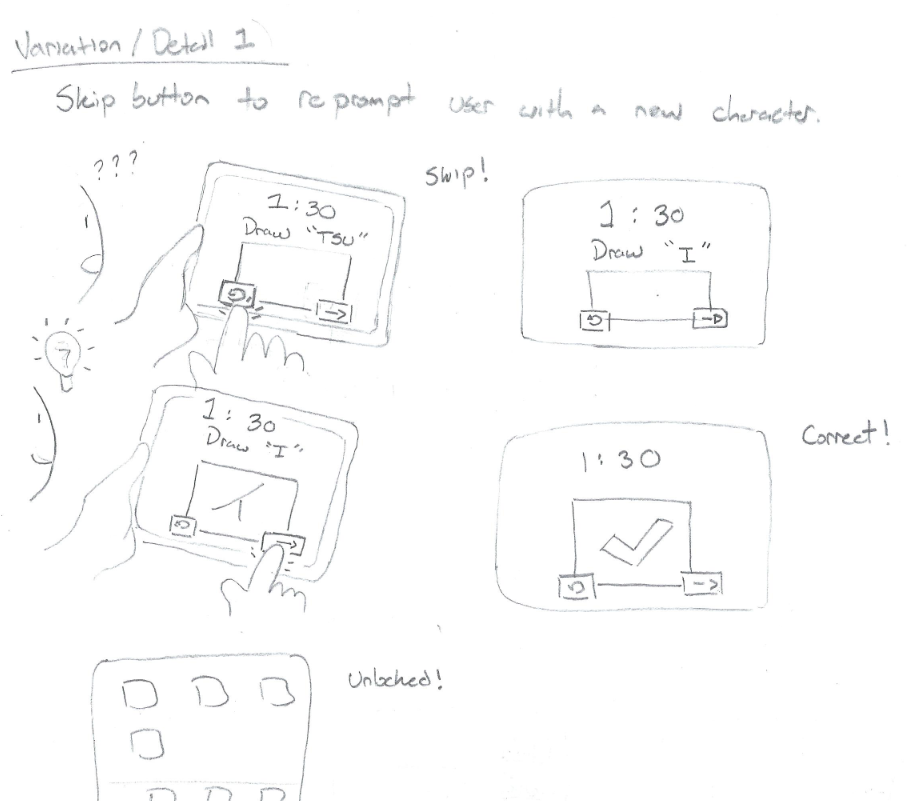 Variation / Detail 1
Skip button to reprompt user with a new character.
???
1:30
Draw "TSU"
Skip!
1:30
Draw "I"
1:30
Draw "I"
1:30
Correct!
Unlocked!